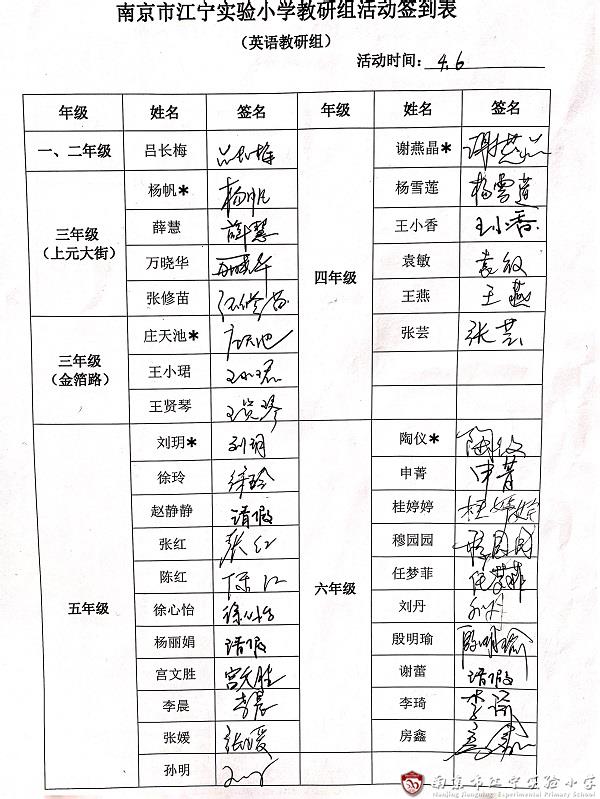 南京市江宁实验小学教研组活动签到表
（英语教研组）
活动时间： 4.6
年级 姓名 签名 年级 姓名 签名
一、二年级 吕长梅 吕长梅 四年级 谢燕晶* 谢燕晶
三年级（上元大街） 杨帆* 杨帆 杨雪莲 杨雪莲
薛慧 薛慧 王小香 王小香
万晓华 万晓华 袁敏 袁敏
张修苗 张修苗 王燕 王燕
三年级（金箔路） 庄天池* 庄天池 张芸 张芸
王小珺 王小珺
王贤琴 王贤琴
五年级 刘玥* 刘玥 六年级 陶仪* 陶仪
徐玲 徐玲 申菁 申菁
赵静静 请假 桂婷婷 桂婷婷
张红 张红 穆园园 穆园园
陈红 陈红 任梦菲 任梦菲
徐心怡 徐心怡 刘丹 刘丹
杨丽娟 请假 殷明瑜 殷明瑜
宫文胜 宫文胜 谢蕾 请假
李晨 李晨 李琦 李琦
张媛 张媛 房鑫 房鑫
孙明
南京市江宁实验小学
Nanjing Jiangning Experimental Primary School